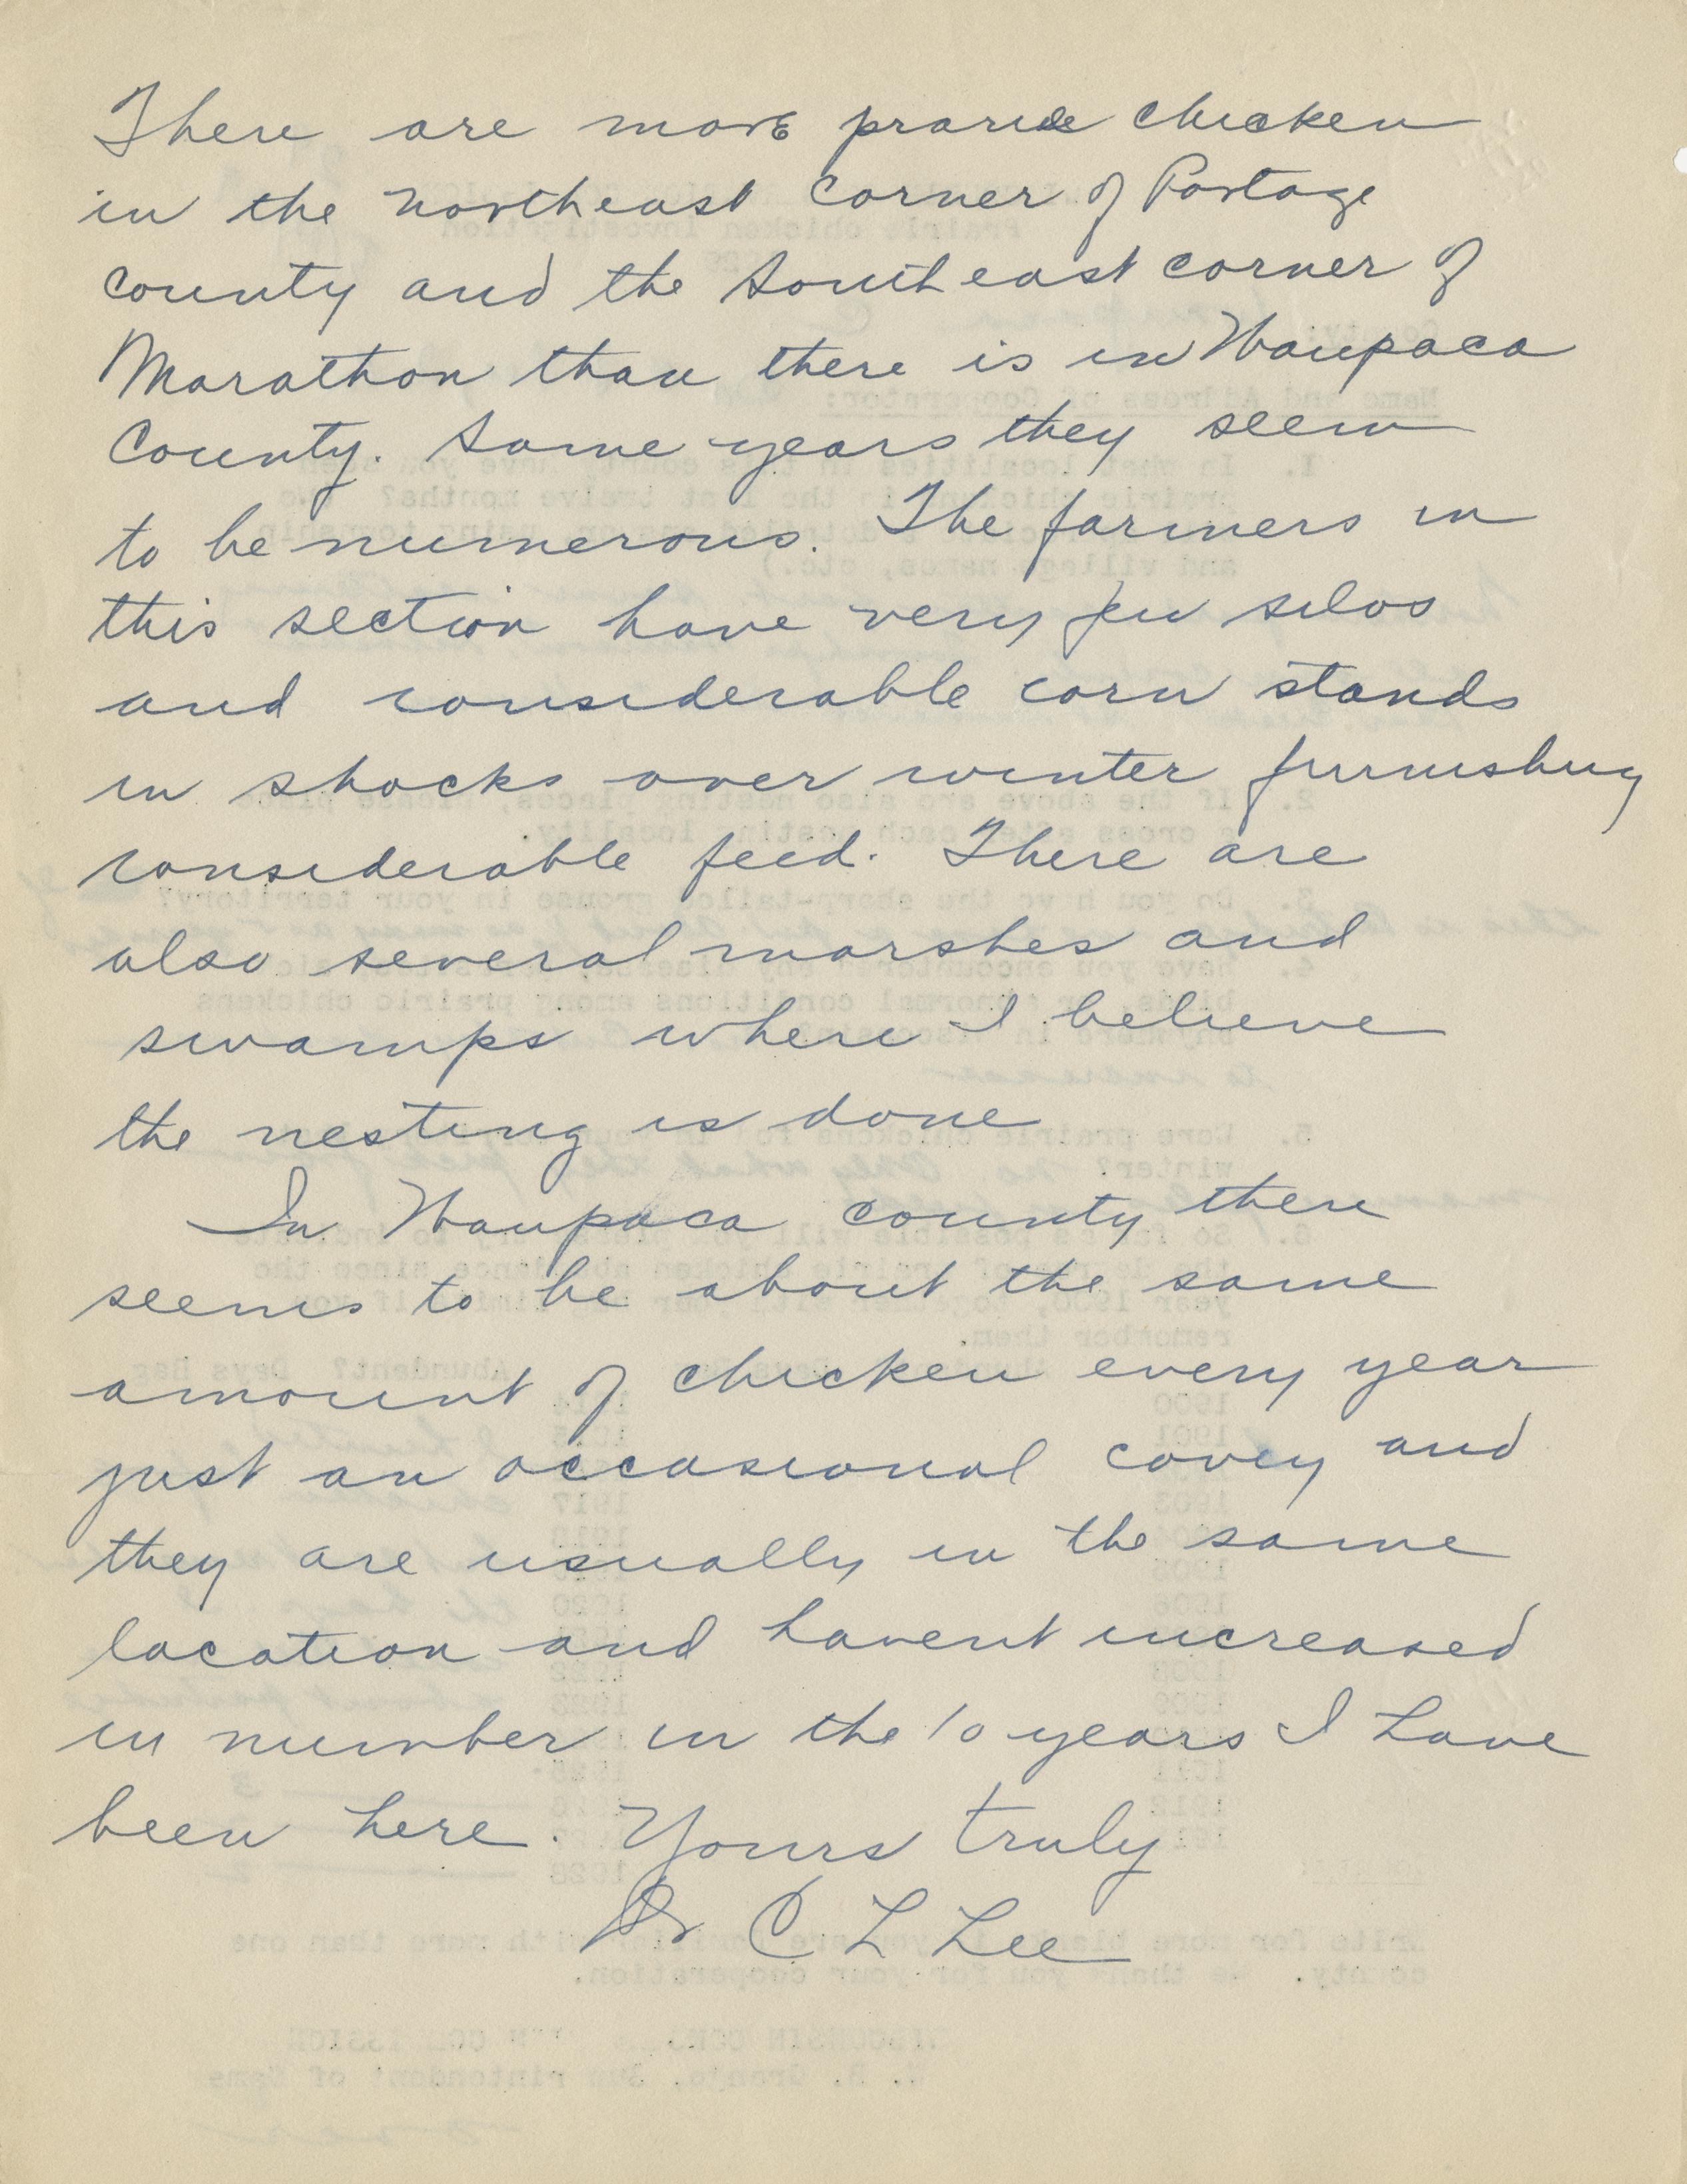 There are more prarie chicken
in the northeast corner of Portage
county and the Southeast corner of
Marathon than there is in Waupaca
County. Some years they seem
to be numerous. The farmers in
this section have very few silos
and considerable corn stands
in shocks over winter furnishing
considerable feed. There are
also several marshes and
swamps where I believe
the nesting is done
In Waupaca county there
seems to be about the same
amount of chicken every year
just an occasional covey and
they are usually in the same
location and havent increased
in number in the 10 years I have
been here. Yours truly
Dr C L Lee